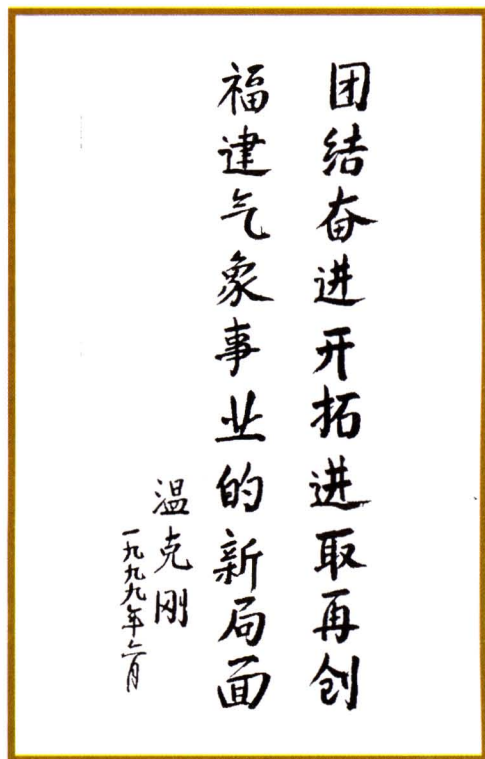 团结奋进开拓进取再创
福建气象事业的新局面
温克刚
一九九九年六月